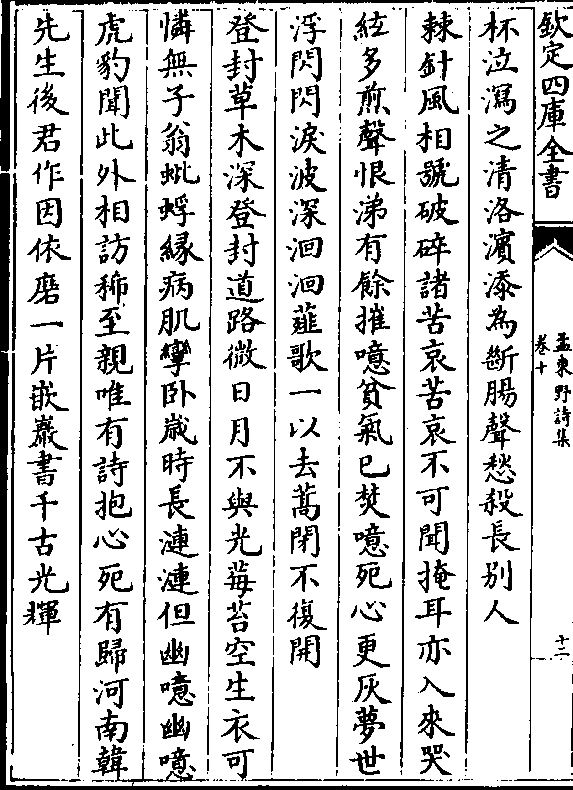 欽定四庫全書
孟東野詩集
卷十
十二
杯泣瀉之清洛濱添為斷腸聲愁殺長別人
棘針風相號破碎諸苦哀苦哀不可聞掩耳亦入來哭
絃多煎聲恨涕有餘摧噫貧氣已焚噫死心更灰夢世
浮閃閃淚波深洄洄薤歌一以去蒿閉不復開
登封草木深登封道路微日月不與光莓苔空生衣可
憐無子翁蚍蜉緣病肌攣卧歲時長漣漣但幽噫幽噫
虎豹聞此外相訪稀至親唯有詩抱心死有歸河南韓
先生後君作因依磨一片嵌巖書千古光輝